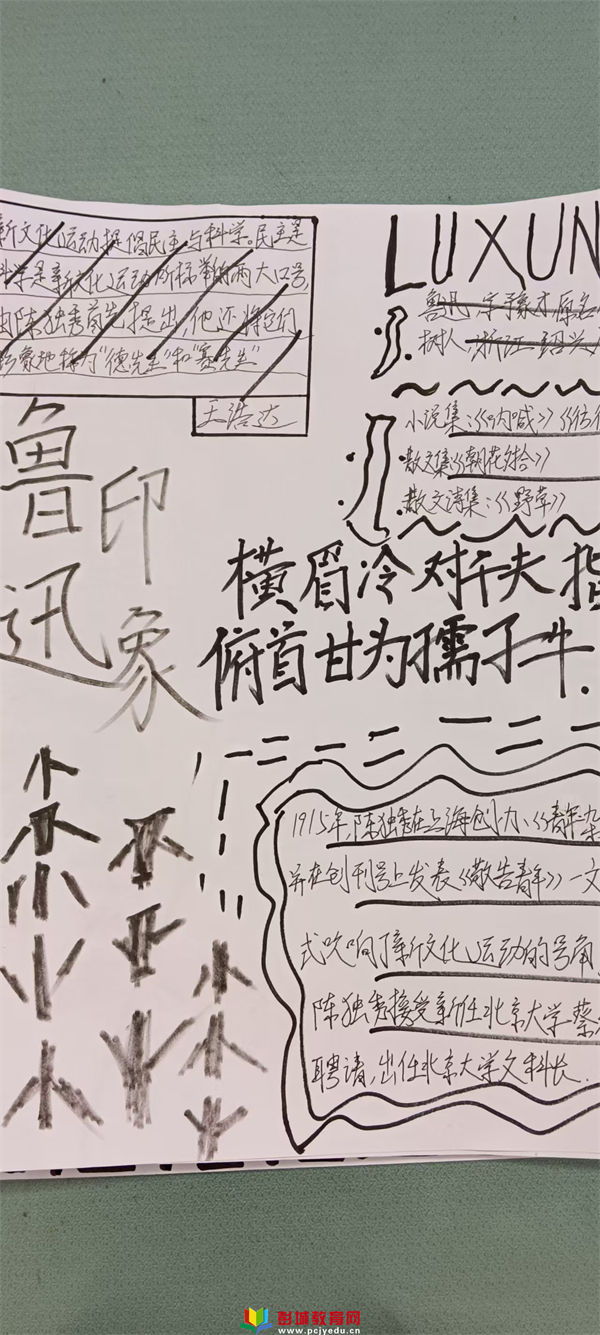 新文化运动提倡民主与科学。民主是
科学是新文化运动所标举的两大口号,
由陈独秀首先提出,他还将它们
形象地称为“德先生”和“赛先生”
王浩达
LUXUN
鲁迅 字豫才 原名
树人,浙江绍兴
小说集:《呐喊》《彷徨
散文集《朝花夕拾》
散文诗集:《野草》
鲁迅
印象
横眉冷对千夫指
俯首甘为孺子牛.
1915年,陈独秀在上海创办《青年杂
并在创刊号上发表《敬告青年》一文
式吹响了新文化运动的号角
陈独秀接受新任北京大学蔡
聘请,出任北京大学文科长.
彭城教育网
www.pcjyedu.cn